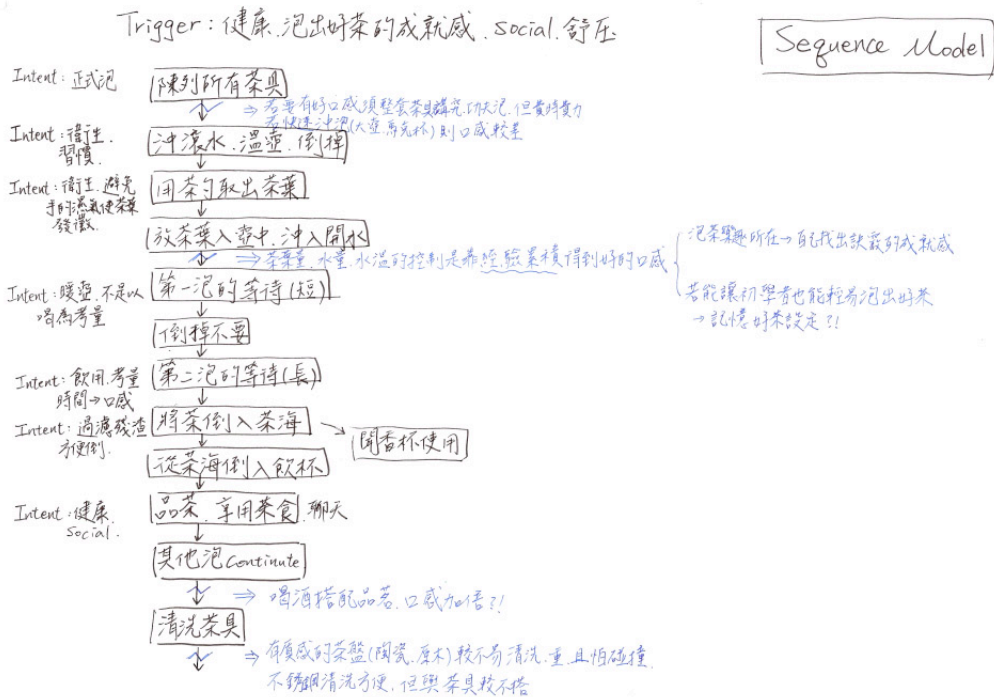 Trigger：健康、泡出好茶的成就感、social、舒压
Sequence Model
Intent：正式泡
陳列所有茶具
⇒ 若要有好口感須整套茶具講究功夫泡，但費時費力
若快速沖泡(大壺、馬克杯)則口感較差
Intent：衛生、
習慣、
沖滾水、溫壺、倒掉
Intent：衛生、避免
手的濕氣使茶葉
發黴、
用茶勺取出茶葉
放茶葉入壺中、沖入開水
⇒ 茶葉量、水量、水溫的控制是靠經驗累積得到好的口感
泡茶樂趣所在→自己找出訣竅的成就感
若能讓初學者也能輕易泡出好茶
→記憶好茶設定?!
Intent：暖壺、不足以
喝為考量
第一泡的等待(短)
倒掉不要
Intent：飲用、考量
時間→口感
第二泡的等待(長)
Intent：過濾殘渣
方便倒、
將茶倒入茶海
聞香杯使用
從茶海倒入飲杯
Intent：健康、
Social．
品茶、享用茶食、聊天
其他泡Continute
⇒ 喝酒搭配品茗、口感加倍?!
清洗茶具
⇒ 有質感的茶盤(陶瓷、原木)較不易清洗、重、且怕碰撞、
不銹鋼清洗方便、但與茶具較不搭